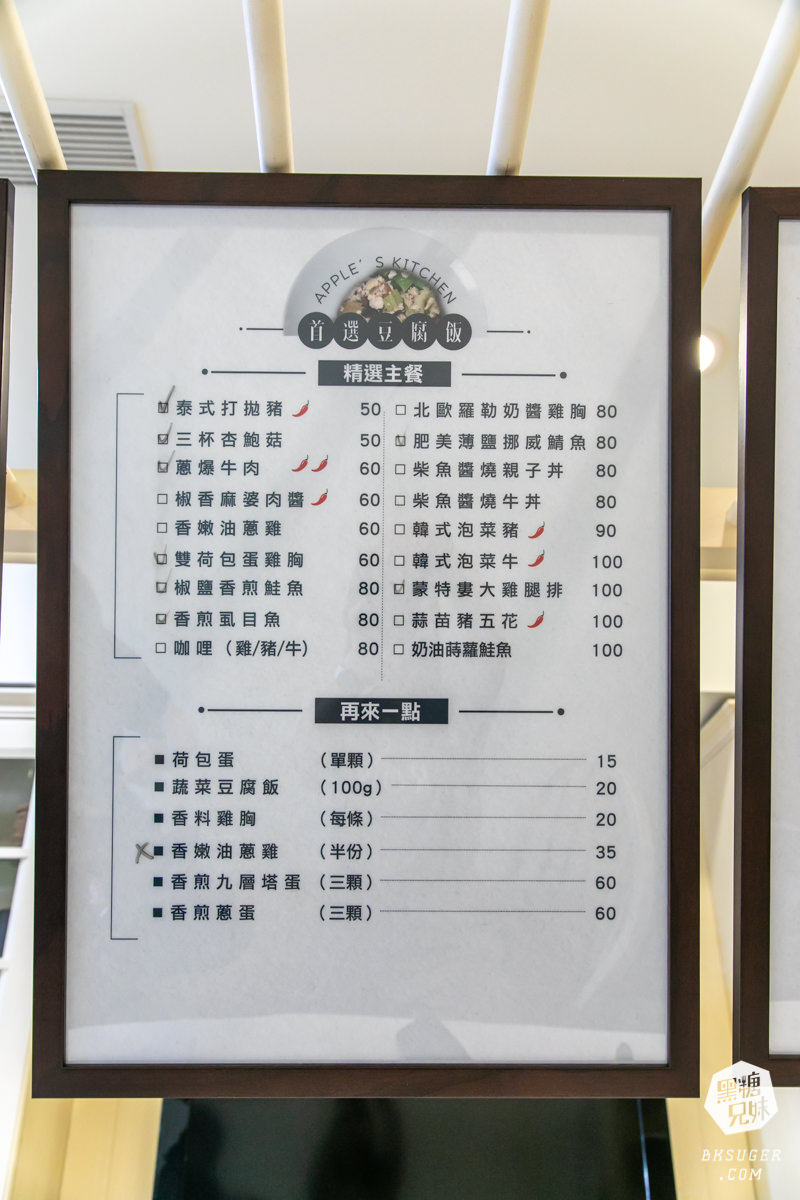 APPLE'S KITCHEN
首選豆腐飯
精選主餐
泰式打拋豬 50
三杯杏鮑菇 50
蔥爆牛肉 60
椒香麻婆肉醬 60
香嫩油蔥雞 60
雙荷包蛋雞胸 60
椒鹽香煎鮭魚 80
香煎虱目魚 80
咖哩（雞/豬/牛） 80
北歐羅勒奶醬雞胸 80
肥美薄鹽挪威鯖魚 80
柴魚醬燒親子丼 80
柴魚醬燒牛丼 80
韓式泡菜豬 90
韓式泡菜牛 100
蒙特婁大雞腿排 100
蒜苗豬五花 100
奶油蒔蘿鮭魚 100
再來一點
荷包蛋 （單顆） 15
蔬菜豆腐飯 （100g） 20
香料雞胸 （每條） 20
香嫩油蔥雞 （半份） 35
香煎九層塔蛋 （三顆） 60
香煎蔥蛋 （三顆） 60
黑糖兄妹
BKSUGER
.COM